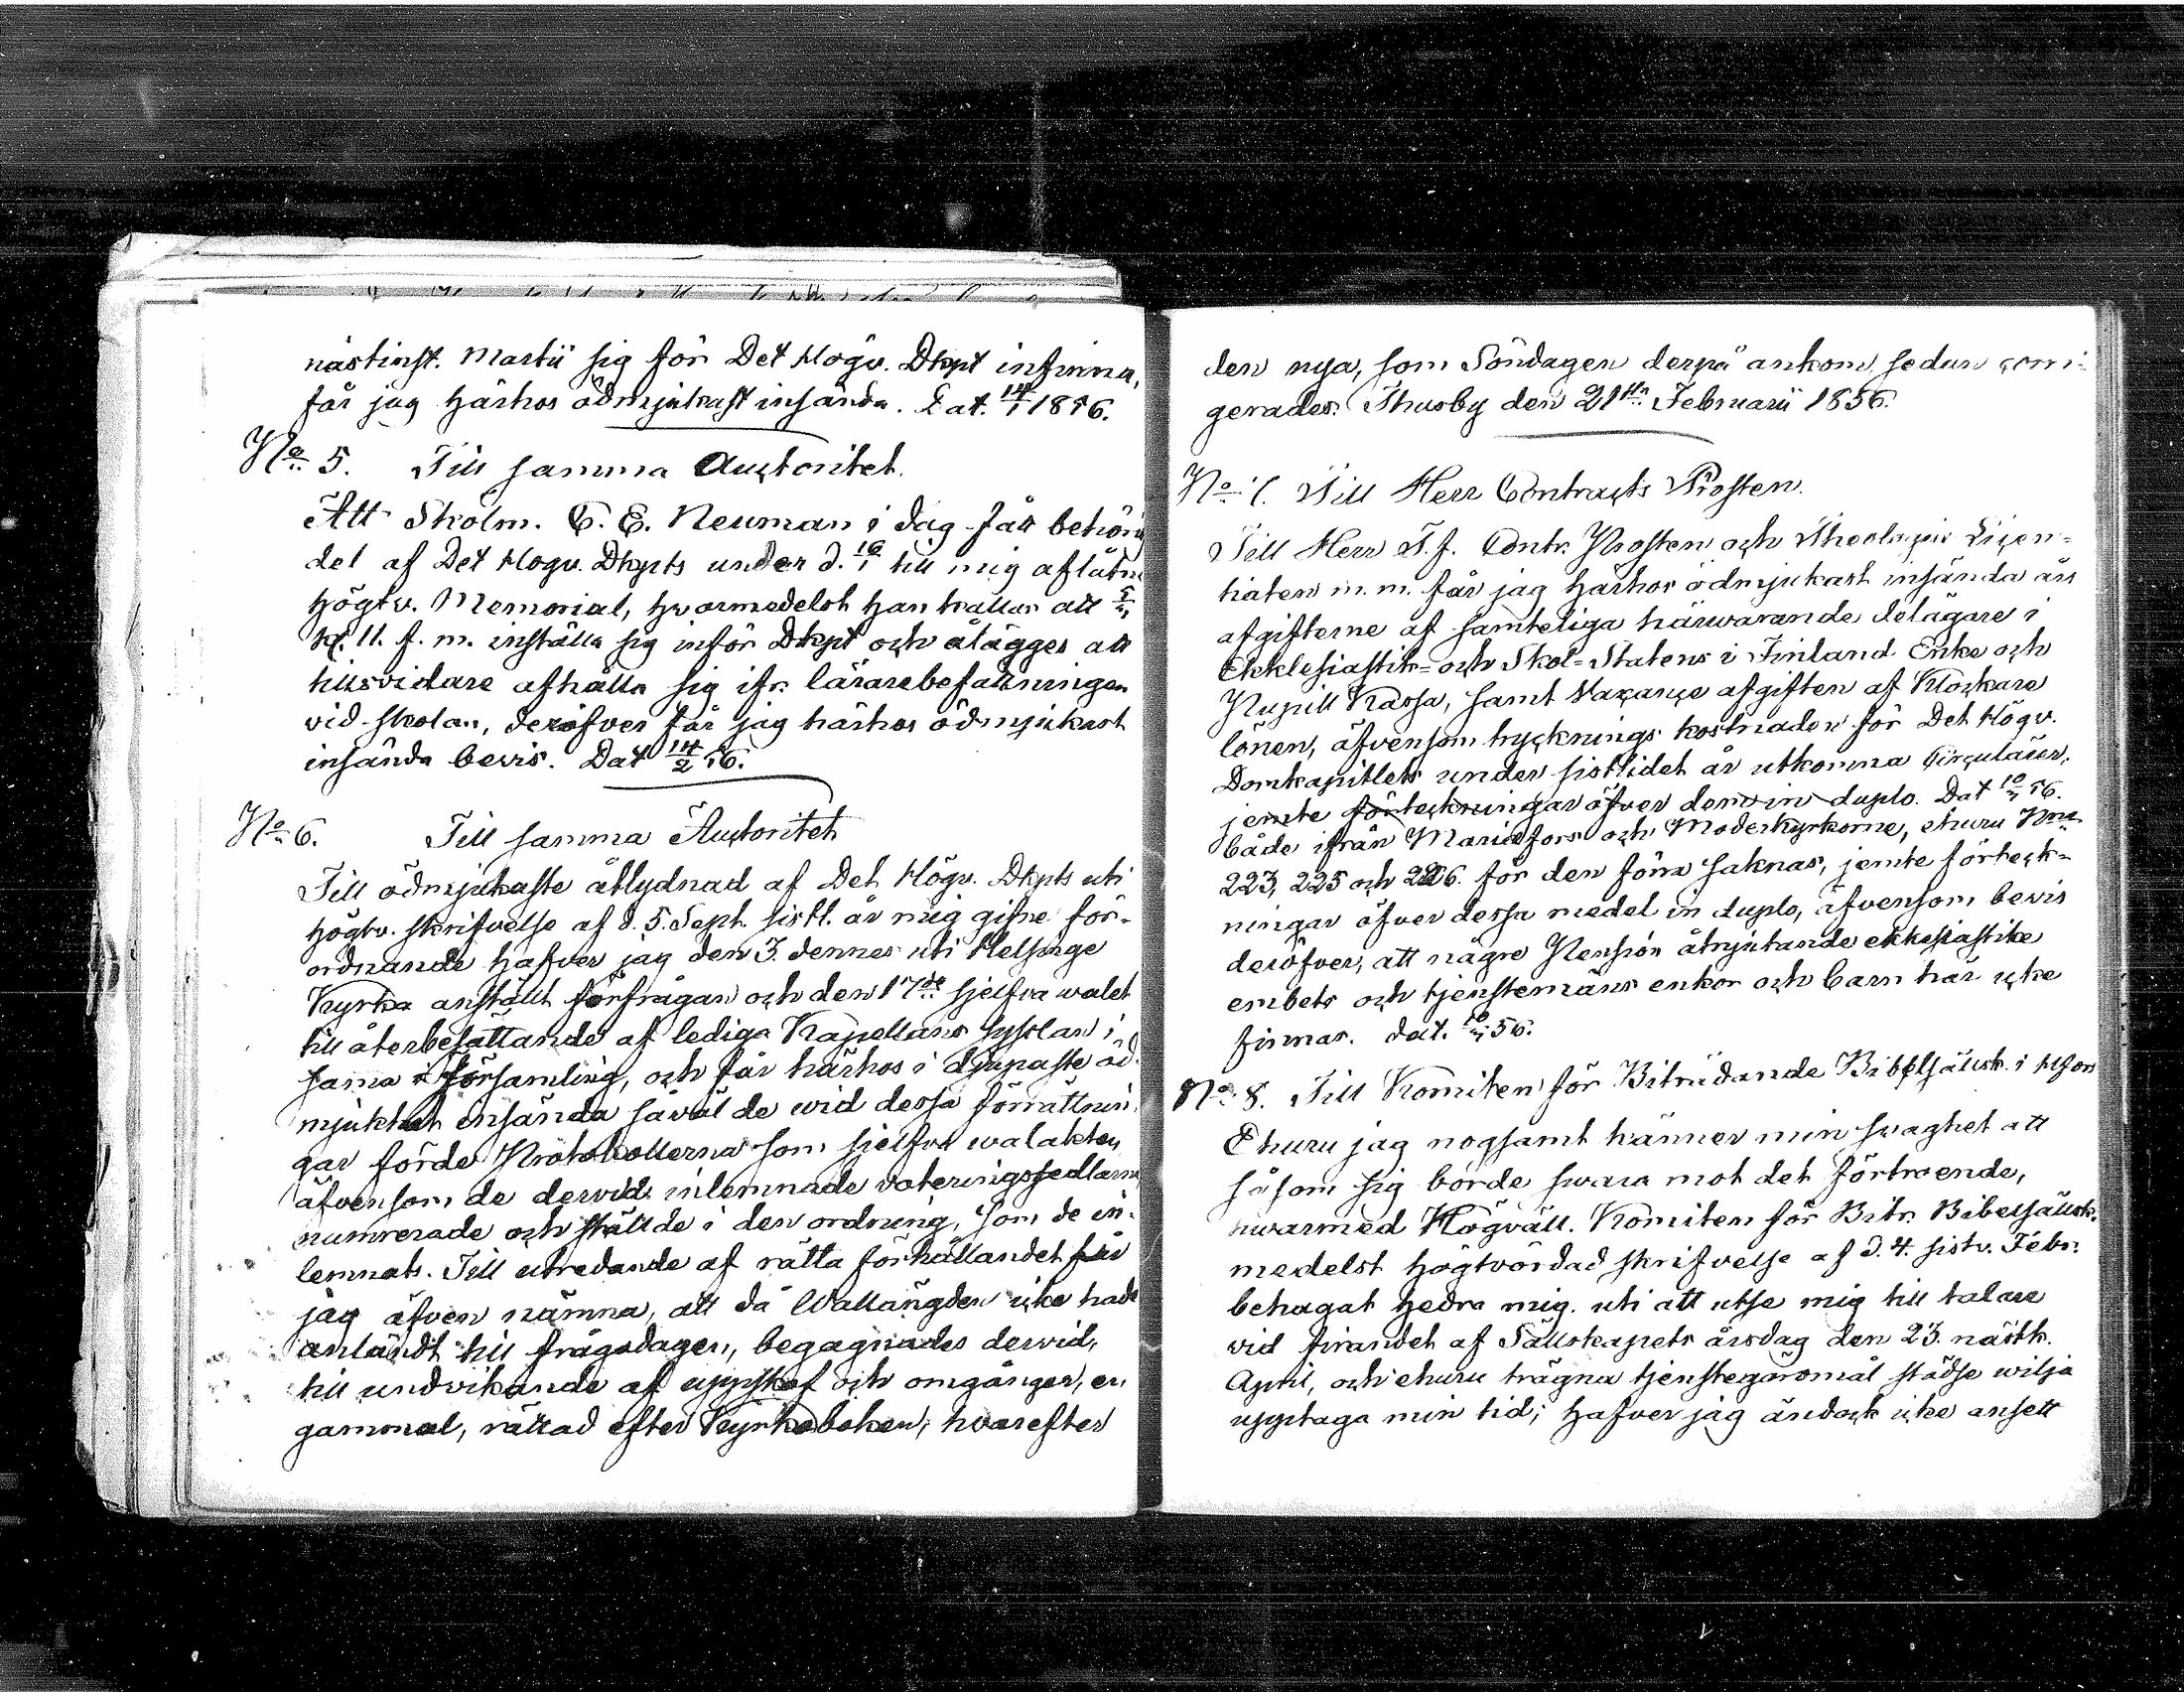 nästinst. Martii sig för Det Högv. Dkpt infinna,
får jag härhos ödmjukast insända. Dat. 14/1 1856.
No 5. Till samma Auctoritet.
Att Skolm. C. E. Neuman i dag fått behöri
del af Det Högv. Dkpts under d. 16/1 till mig aflåtne
högtv. Memorial, hvarmedelst han kallas att
kl. 11. f. m. inställa sig inför Dkpt och ålägges att
tillsvidare afhålla sig ifr. lärarebefattningen
vid skolan, deröfver får jag härhos ödmjukast
insända bevis. Dat 14/2 56.
No 6. Till samma Auctoritet
Till ödmjukaste åtlydnad af Det Högv. Dkpts uti
högtv. skrifvelse af d. 5. Sept. sistl. år mig gifne för-
ordnande hafver jag den 3. dennes uti Helsinge
Kyrka anställt förfrågan och den 17de sjelfva walet
till återbesättande af lediga Kapellans sysslan i
sama församling, och får härhos i djupaste öd-
mjukhet insända såväl de wid dessa förrättnin-
gar förde Protokollerna som sjelfva walakten
äfvensom de dervid inlemnade voteringssedlarne
numrerade och ställde i den ordning, som de in-
lemnats. Till utredande af rätta förhållandet får
jag äfven nämna, att då Wallängden icke hade
anländt till frågodagen, begagnades dervid,
till undvikande af uppskof och omgången, en
gammal, rättad efter Kyrkoboken, hvarefter
den nya, som Söndagen derpå ankom, sedan corri-
gerades. Thusby den 21sta Februarii 1856.
No 7. Till Herr Contracts Prosten.
Till Herr T. f. Contr. Prosten och Theologie Licen-
tiaten m. m. får jag härhos ödmjukast insända års
afgifterne af samteliga härwarande delägare i
Ekklesiastik- och Skol-Statens i Finland Enke och
Pupill Kassa, samt Vacance afgiften af Klockare
lönen, äfvensom tryckningskostnaden för Det Högv.
Domkapitlets under sistlidet år utkomna Circulairer,
jemte förteckningar öfver dem in duplo. Dat 10/3 56.
både ifrån Mariefors och Moderkyrkorne, ehuru
223, 225 och 226. för den förra saknas, jemte förteck-
ningar öfver dessa medel in duplo, äfvensom bevis
deröfver, att någre Pension åtnjutande ekklesiastike
embets och tjenstemäns enkor och barn här icke
finnas. Dat. 10/3 56.
No 8. Till Komiten för Biträdande Bibelsällsk. i Hfors
Ehuru jag nogsamt känner min svaghet att
såsom sig borde svara mot det förtroende,
hwarmed Högväll. Komiten för Bitr. Bibelsällsk.
medelst högtvördad skrifvelse af d. 4. sistv. Febr.
behagat hedra mig. uti att utse mig till talare
vid firandet af Sällskapets årsdag den 23. nästk.
April, och ehuru trägna tjenstegöromål städse wilja
upptaga min tid; hafver jag ändock icke ansett